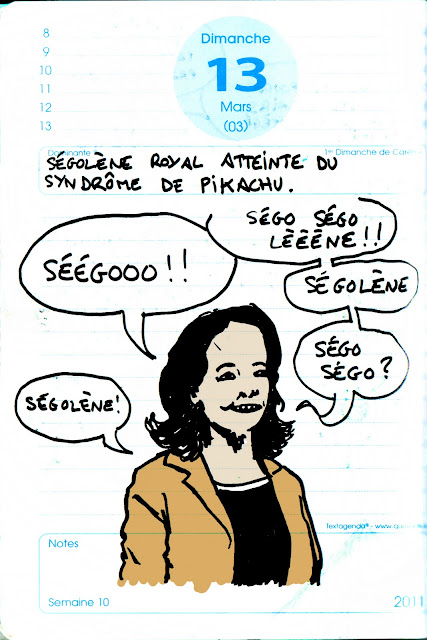 Dimanche
13
Mars
(03)
8
9
10
11
12
13
Dominante
1er Dimanche de Carême
SÉGOLÈNE ROYAL ATTEINTE DU
SYNDRÔME DE PIKACHU.
SÉGO SÉGO
LÈÈÈNE!!
SÉÉGOOO!!
SÉGOLÈNE
SÉGO
SÉGO?
SÉGOLÈNE!
Textagenda® - www.
Notes
Semaine 10
2011